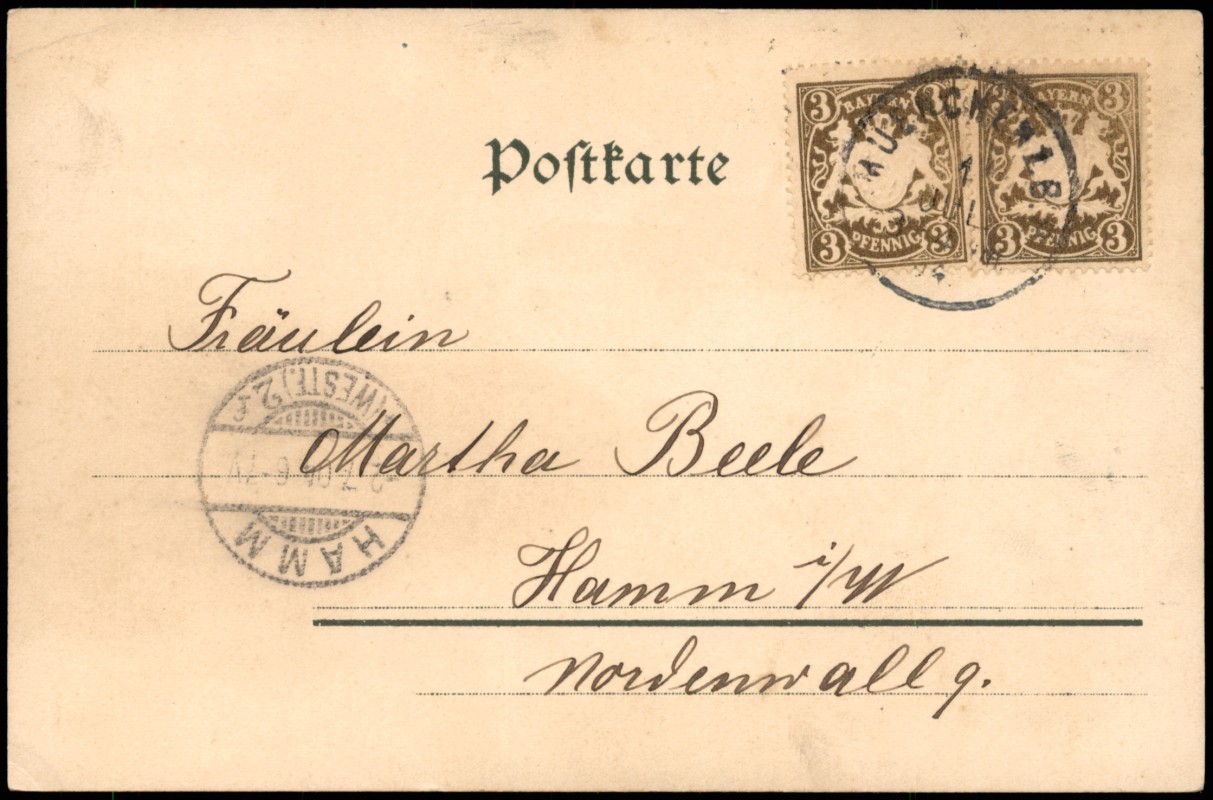 3 BAYERN 3
3 PFENNIG 3
3 BAYERN 3
3 PFENNIG 3
1
JUL
Postkarte
Fräulein
Martha Beele
Hamm i/W
Nordenwall 9.
(WESTF.) 2
HAMM